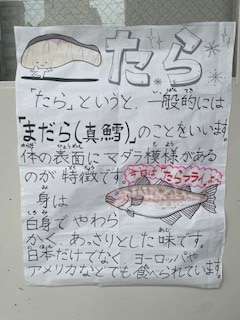 たら
「たら」というと、一般的には
「まだら(真鱈)」のことをいいます。
体の表面にマダラ模様がある
のが特徴です。
今日は「たらフライ」
身は
白身でやわら
かく、あっさりとした味です。
日本だけでなく ヨーロッパや
アメリカなどでも食べられています。